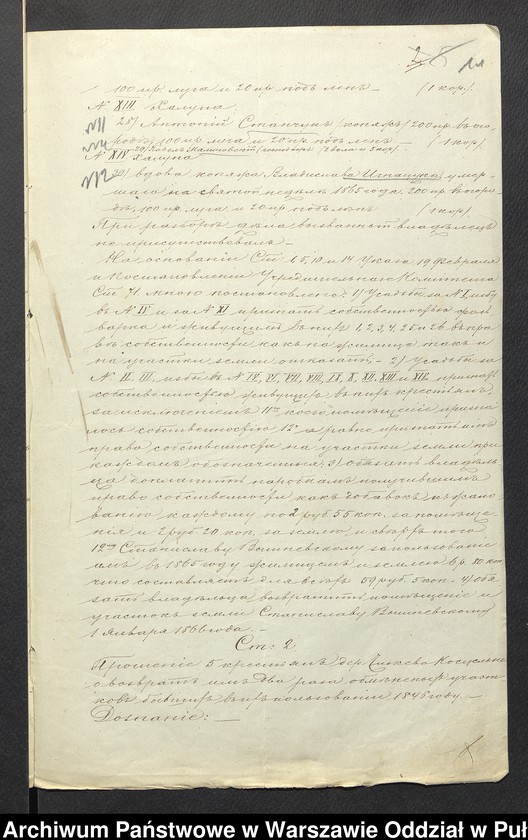 100 пр. луга и 20 пр. подъ ленъ — (1 кор.)
N XIII Халупа
28) Антоній Станчукъ / коняръ / 200 пр. въ ого-
родѣ, 100 пр. луга и 20 пр. подъ ленъ — (1 кор.)
N XIV Халупа
вдова коняра Владислава Игнащука умер-
шаго на святой недѣлѣ 1865 года. 200 пр. въ огоро-
дѣ, 100 пр. луга и 20 пр. подъ ленъ (1 кор.)
При разборѣ дѣла вызванный владѣлецъ
не присутствовалъ. —
На основаніи Ст. 1, 5, 10 и 14 Указа 19 Февраля
и Постановленія Учредительнаго Комитета
Ст. 71 мною постановлено: 1) Усадьбы за N I избу
въ N IV и за N XI признать собственностью фоль-
варка и живущимъ въ нихъ 1, 2, 24, 25 и 26 въ пра-
вѣ собственности какъ на жилища такъ и
на участки земли отказать; — 2) Усадьбы за
N II, III, избы въ N IV, VI, VII, VIII, IX, X, XII, XIII и XIV признать
собственностью живущихъ въ нихъ крестьянъ,
за исключеніемъ 11го коего помѣщеніе призна-
лось собственностью 12го равно признать имъ
право собственности на участки земли при
каждомъ обозначенныя; 3) обязать владѣль-
ца доплатить паробкамъ получившимъ
право собственности какъ добавокъ къ жало-
ванію каждому по 2 руб. 55 коп. за помѣще-
нія и 2 руб. 20 коп. за землю и сверхъ того
12му Станиславу Вишневскому за пользованіе
имъ въ 1865 году жилищемъ и землею 6 р. 80 коп.
что составляетъ для всѣхъ 59 руб. 5 коп. — 4) обя-
зать владѣльца возвратить помѣщеніе и
участокъ земли Станиславу Вишневскому
1 Января 1866 года. —
Ст: 2
Прошеніе 5 крестьянъ дер.
о возвратѣ имъ два раза обмѣненныхъ участ-
ковъ бывшихъ въ ихъ пользованіи 1846 году. —
Дознаніе: —
Archiwum Państwowe w Warszawie Oddział w Puł